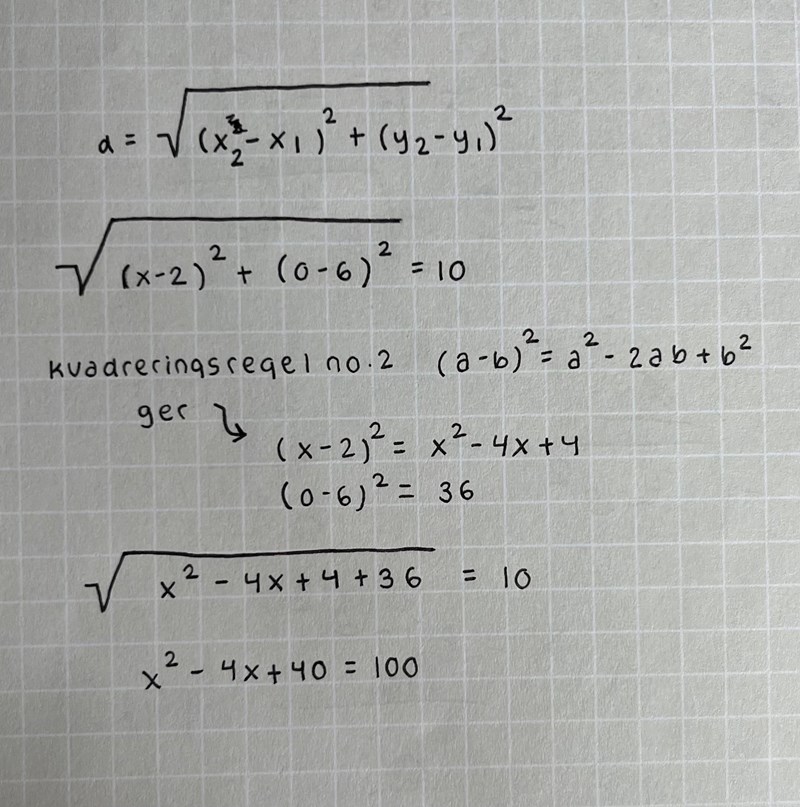 d = √(x₂ - x₁)² + (y₂ - y₁)²
√(x-2)² + (0-6)² = 10
kvadreringsregel no.2 (a-b)² = a² - 2ab + b²
ger ↘
(x-2)² = x² - 4x + 4
(0-6)² = 36
√x² - 4x + 4 + 36 = 10
x² - 4x + 40 = 100